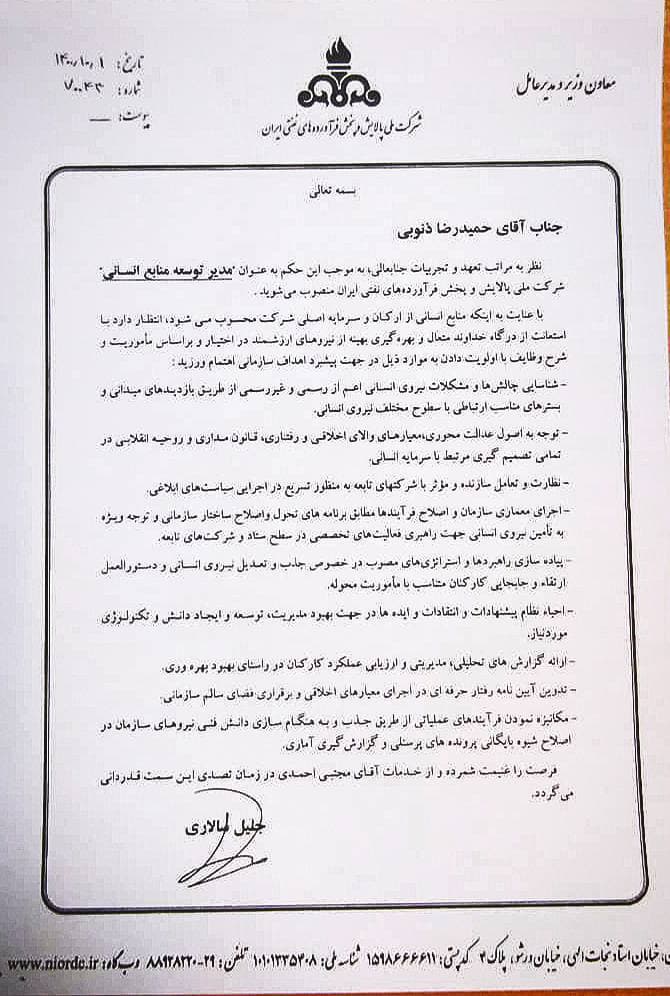 معاون وزیر و مدیرعامل
تاریخ: ۱۴۰۰/۱۰/۱
شماره: ۷/۰۰۴۳
پیوست: —
شرکت ملی پالایش و پخش فرآورده‌های نفتی ایران
بسمه تعالی
جناب آقای حمیدرضا ذنوبی
نظر به مراتب تعهد و تجربیات جنابعالی، به موجب این حکم به عنوان "مدیر توسعه منابع انسانی"
شرکت ملی پالایش و پخش فرآورده‌های نفتی ایران منصوب می‌شوید.
با عنایت به اینکه منابع انسانی از ارکان و سرمایه اصلی شرکت محسوب می شود، انتظار دارد با
استعانت از درگاه خداوند متعال و بهره‌گیری بهینه از نیروهای ارزشمند در اختیار و براساس مأموریت و
شرح وظایف با اولویت دادن به موارد ذیل در جهت پیشبرد اهداف سازمانی اهتمام ورزید :
- شناسایی چالش‌ها و مشکلات نیروی انسانی اعم از رسمی و غیررسمی از طریق بازدیدهای میدانی و
بسترهای مناسب ارتباطی با سطوح مختلف نیروی انسانی.
- توجه به اصول عدالت محوری،معیارهای والای اخلاقی و رفتاری، قانون مداری و روحیه انقلابی در
تمامی تصمیم گیری مرتبط با سرمایه انسانی.
- نظارت و تعامل سازنده و مؤثر با شرکتهای تابعه به منظور تسریع در اجرایی سیاست‌های ابلاغی.
- اجرای معماری سازمان و اصلاح فرآیندها مطابق برنامه های تحول واصلاح ساختار سازمانی و توجه ویژه
به تأمین نیروی انسانی جهت راهبری فعالیت‌های تخصصی در سطح ستاد و شرکت‌های تابعه.
- پیاده سازی راهبردها و استراتژی‌های مصوب در خصوص جذب و تعدیل نیروی انسانی و دستورالعمل
ارتقاء و جابجایی کارکنان متناسب با مأموریت محوله.
- احیاء نظام پیشنهادات و انتقادات و ایده ها در جهت بهبود مدیریت، توسعه و ایجاد دانش و تکنولوژی
موردنیاز.
- ارائه گزارش های تحلیلی، مدیریتی و ارزیابی عملکرد کارکنان در راستای بهبود بهره وری.
- تدوین آیین نامه رفتار حرفه ای در اجرای معیارهای اخلاقی و برقراری فضای سالم سازمانی.
- مکانیزه نمودن فرآیندهای عملیاتی از طریق جذب و به هنگام سازی دانش فنی نیروهای سازمان در
اصلاح شیوه بایگانی پرونده های پرسنلی و گزارش‌گیری آماری.
فرصت را غنیمت شمرده و از خدمات آقای مجتبی احمدی در زمان تصدی این سمت قدردانی
می گردد.
جلیل سالاری
خیابان استاد نجات الهی، خیابان ورشو، پلاک ۴ کدپستی: ۱۵۹۸۶۶۶۶۱۱ شناسه ملی: ۱۰۱۰۱۳۳۵۳۰۸ تلفن: ۲۹-۸۸۹۲۸۲۲۰ وب‌گاه: www.niordc.ir